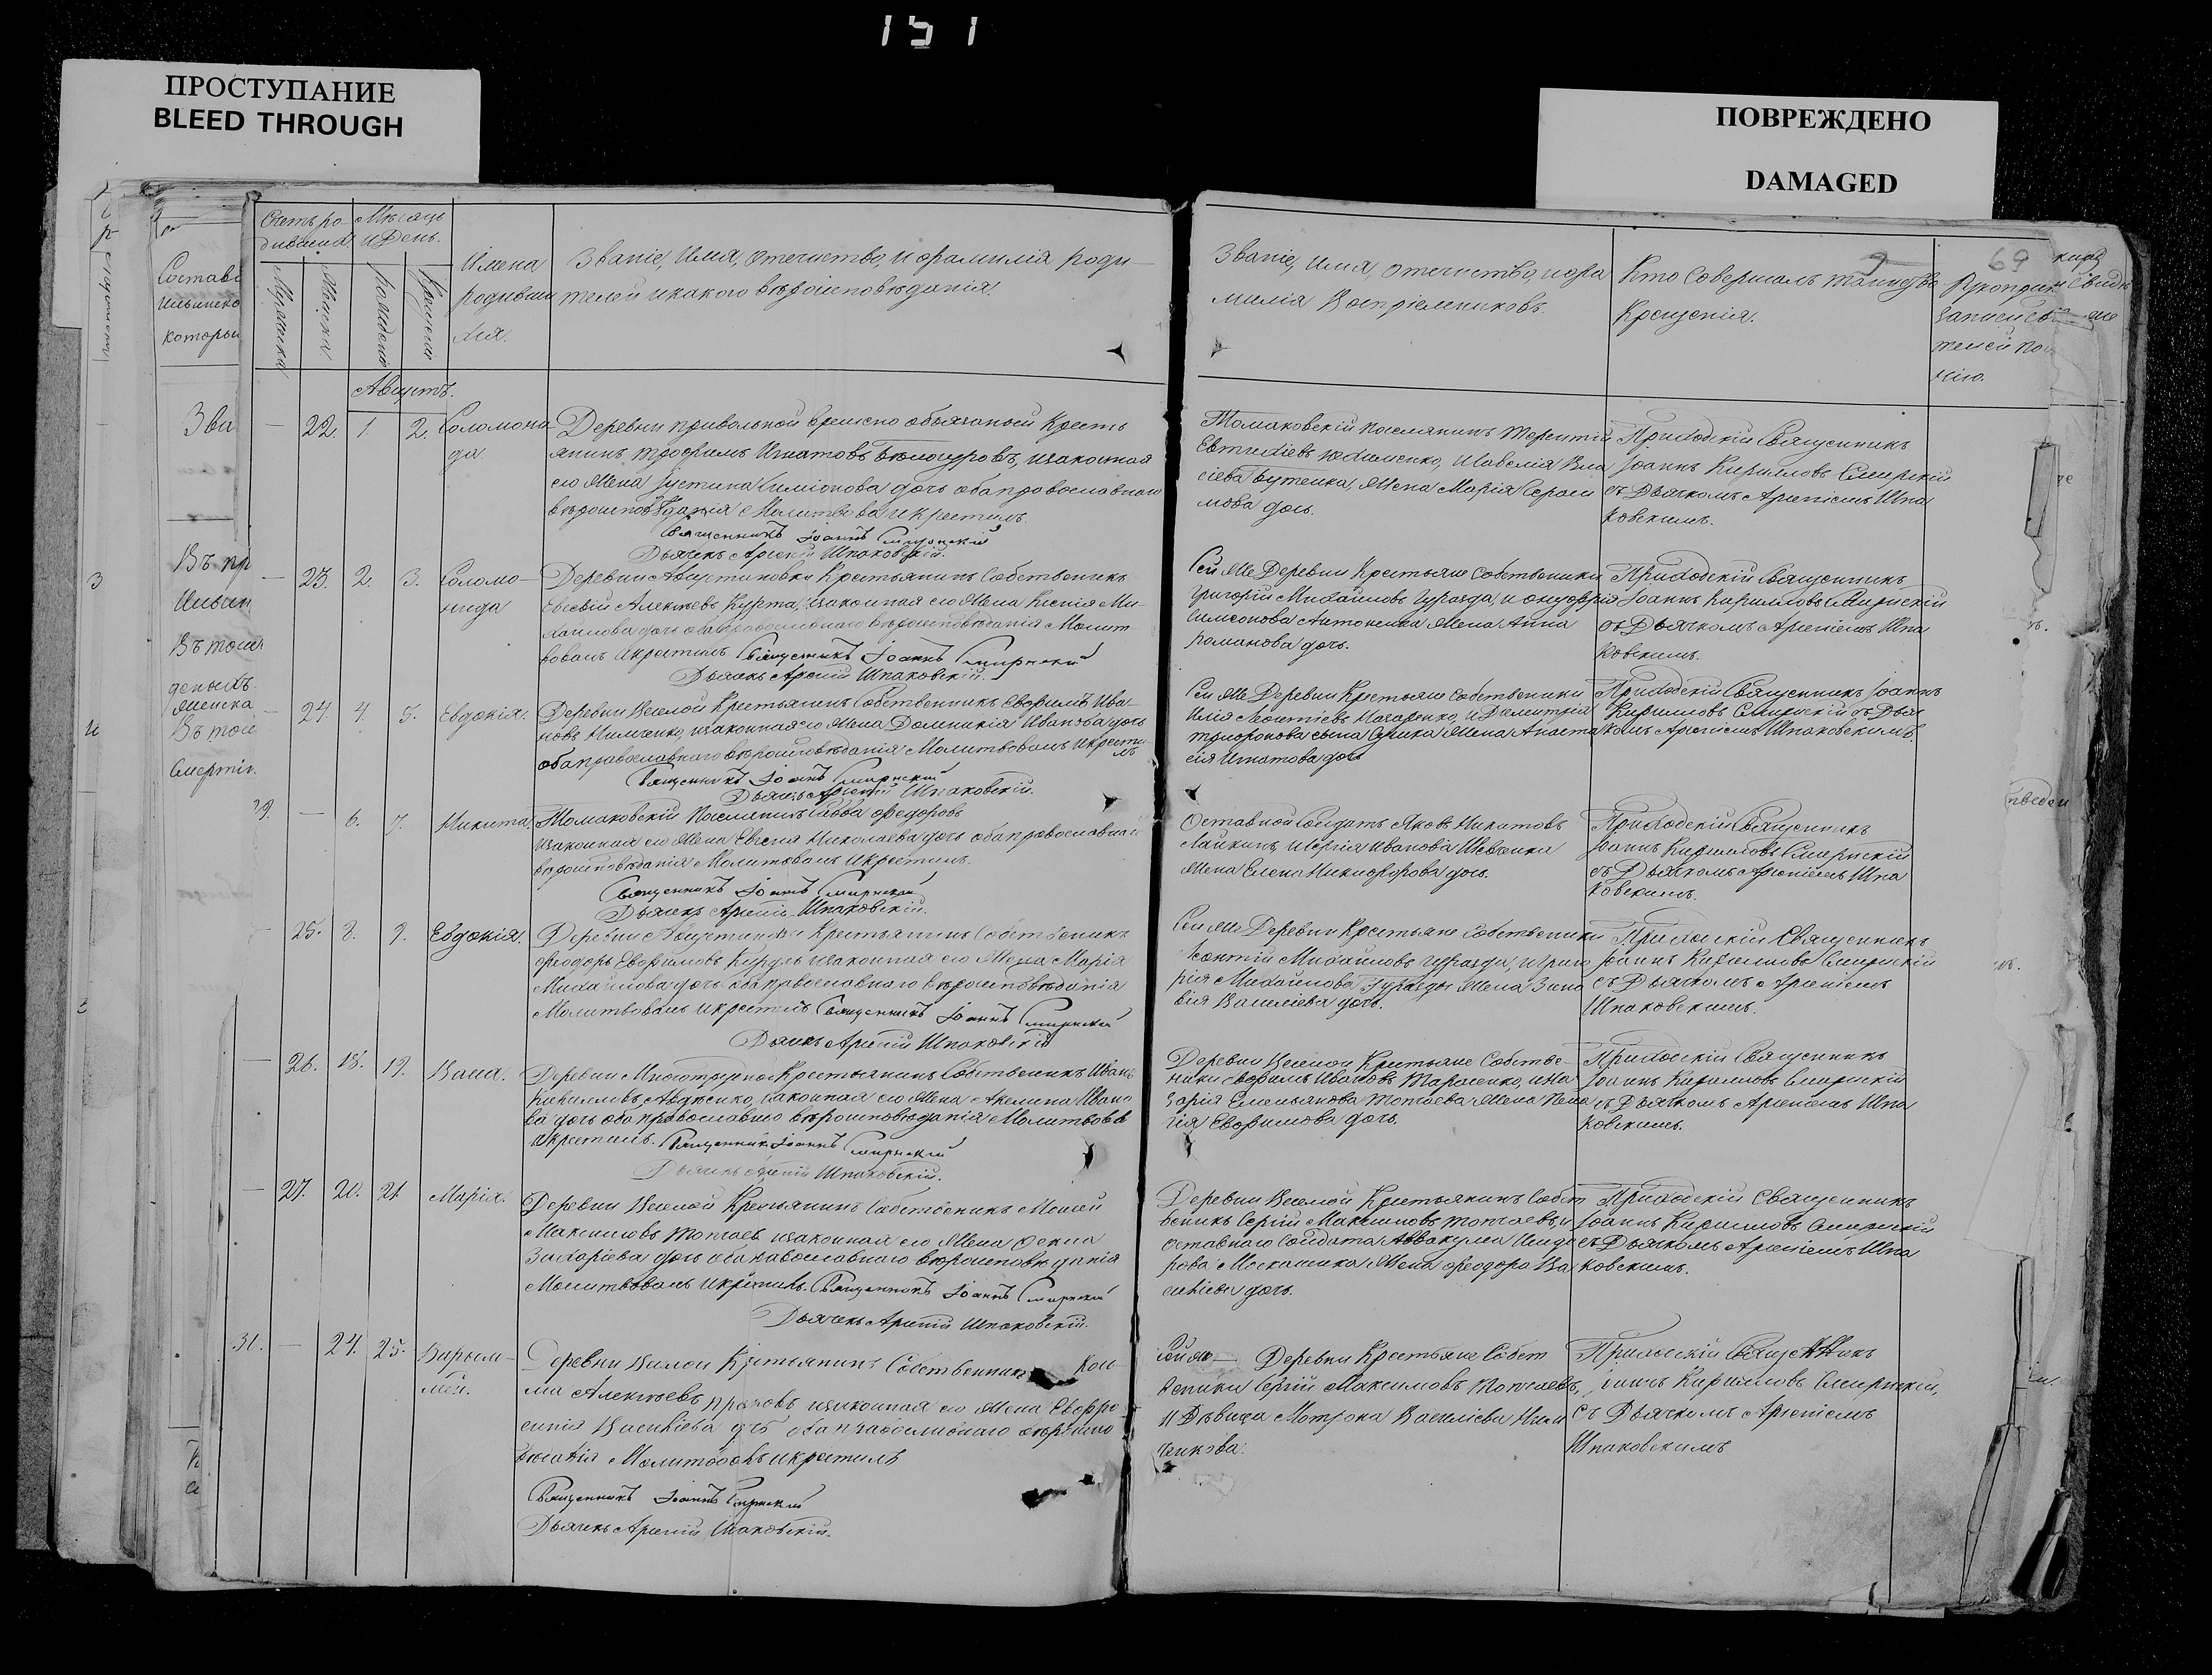 151
ПРОСТУПАНИЕ
BLEED THROUGH
ПОВРЕЖДЕНО
DAMAGED
Счетъ ро-
дившихся
Мѣсяцъ
и День.
Мужеска
Женска
рожденія
Крещенія
Имена
родивши
хся.
Званіе, Имя, отечество, и фамилія роди-
телей и какого вѣроисповѣданія.
Званіе, имя, отечество, и фа
милія Воспріемниковъ.
Кто Совершалъ таинство
Крещенія.
69
Рукоприк
записей
телей по
Августъ.
— 22. 1 2. Соломони
да.
Деревни привольной временно обязаный Кресть
янинъ Трофимъ Игнатовъ Бѣлогуровъ, и законная
его Жена Іустина Симіонова дочь оба православнаго
вѣроисповѣданія Молитвова и крестилъ.
Священникъ Іоаннъ Смирнскій
Дьячекъ Арсеній Шпаковскій.
Томаковскій поселянинъ Терентій
Евтихіевъ Юхименко, и Савелія Вла
сіева Бутенка, Жена Марія Гераси
мова дочь.
Приходскій Священникъ
Іоаннъ Кирилловъ Смирнскій
съ Дьячкомъ Арсеніемъ Шпа
ковскимъ.
— 23. 2. 3. Соломо-
нида
Деревни Августиновки Крестьянинъ Собственникъ
Евсевій Алексѣевъ Курта, и законная его Жена Ксенія Ми-
хайлова дочь оба православнаго вѣроисповѣданія Молит
вовалъ и крестилъ Священникъ Іоаннъ Смирнскій
Дьячекъ Арсеній Шпаковскій.
Сей же Деревни Крестьяне Собственники
Григорій Михайловъ Гуразда, и Онуфрія
Симеонова Антоненка Жена Анна
романова дочь.
Приходскій Священникъ
Іоаннъ Кирилловъ Смирнскій
съ Дьячкомъ Арсеніемъ Шпа
ковскимъ.
— 24. 4. 5. Евдокія.
Деревни Веселой Крестьянинъ Собственникъ Евфимъ Ива-
новъ Нимченко, и законная его Жена Домникія Иванова дочь
оба православнаго вѣроисповѣданія Молитвовалъ и крести
лъ
Священникъ Іоаннъ Смирнскій
Дьячекъ Арсеній Шпаковскій.
Сей же Деревни Крестьяне Собственники
Илія Леонтіевъ Назаренко, и Димитрія
Тимофонова сына Сулика Жена Анаста
сія Игнатова дочь
Приходскій Священникъ Іоаннъ
Кирилловъ Смирнскій съ Дья
комъ Арсеніемъ Шпаковскимъ.
29. — 6. 7. Никита.
Томаковскій Поселянинъ Савва Федоровъ
и законная его Жена Евгенія Николаева дочь оба православнаго
вѣроисповѣданія Молитвовалъ и крестилъ.
Священникъ Іоаннъ Смирнскій
Дьячекъ Арсеній Шпаковскій.
Оставной Солдатъ Яковъ Никитовъ
Лайкинъ, и Сергія Иванова Шевченка
Жена Елена Никифорова дочь.
Приходскій Священникъ
Іоаннъ Кирилловъ Смирнскій
съ Дьячкомъ Арсеніемъ Шпа
ковскимъ.
— 25. 8. 9. Евдокія.
Деревни Августиновки Крестьянинъ Собственникъ
Феодоръ Евфимовъ Куруль и законная его Жена Марія
Михайлова дочь оба православнаго вѣроисповѣданія
Молитвовалъ и крестилъ Священникъ Іоаннъ Смирнскій
Дьячекъ Арсеній Шпаковскій
Сей же Деревни Крестьяне Собственники
Леонтій Михайловъ Гуразда, и Григо
рія Михайлова Гуразды Жена Зино
вія Василіева дочь.
Приходскій Священникъ
Іоаннъ Кирилловъ Смирнскій
съ Дьячкомъ Арсеніемъ
Шпаковскимъ.
— 26. 18. 19. Васса.
Деревни Многотрудной Крестьянинъ Собственникъ Иванъ
Кирилловъ Авдѣенко, законная его Жена Акелина Ивано
ва дочь оба православнаго вѣроисповѣданія Молитвовалъ
и крестилъ. Священникъ Іоаннъ Смирнскій
Дьячекъ Арсеній Шпаковскій.
Деревни Веселой Крестьяне Собстве-
нники Евфимъ Ивановъ Тарасенко, и На
зарія Емельянова Топчаева Жена Пела
гія Евфимова дочь.
Приходскій Священникъ
Іоаннъ Кирилловъ Смирнскій
съ Дьячкомъ Арсеніемъ Шпа
ковскимъ.
— 27. 20. 21. Марія.
Деревни Веселой Крестьянинъ Собственникъ Моисей
Максимовъ Топчаевъ и законная его Жена Фекла
Захаріева дочь оба православнаго вѣроисповѣданія
Молитвовалъ и крестилъ. Священникъ Іоаннъ Смирнскій
Дьячекъ Арсеній Шпаковскій.
Деревни Веселой Крестьянинъ Собст
венникъ Сергій Максимовъ Топчаевъ, и
Оставнаго Солдата Аввакума Исидо
рова Москаленка Жена Феодора Ва
силіева дочь.
Приходскій Священникъ
Іоаннъ Кирилловъ Смирнскій
съ Дьячкомъ Арсеніемъ Шпа
ковскимъ.
31. — 24. 25. Варфоло-
мей.
Деревни Веселой Крестьянинъ Собственникъ Козь-
ма Алексѣевъ и законная его Жена Евфро
синія Василіева дочь оба православнаго вѣроиспо
вѣданія Молитвовалъ и крестилъ
Священникъ Іоаннъ Смирнскій
Дьячекъ Арсеній Шпаковскій.
Сей же Деревни Крестьяне Собст
венники Сергій Максимовъ Топчаевъ,
и Дѣвица Мотрона Василіева Ним
ченкова.
Приходскій Священникъ
Іоаннъ Кирилловъ Смирнскій,
съ Дьячкомъ Арсеніемъ
Шпаковскимъ